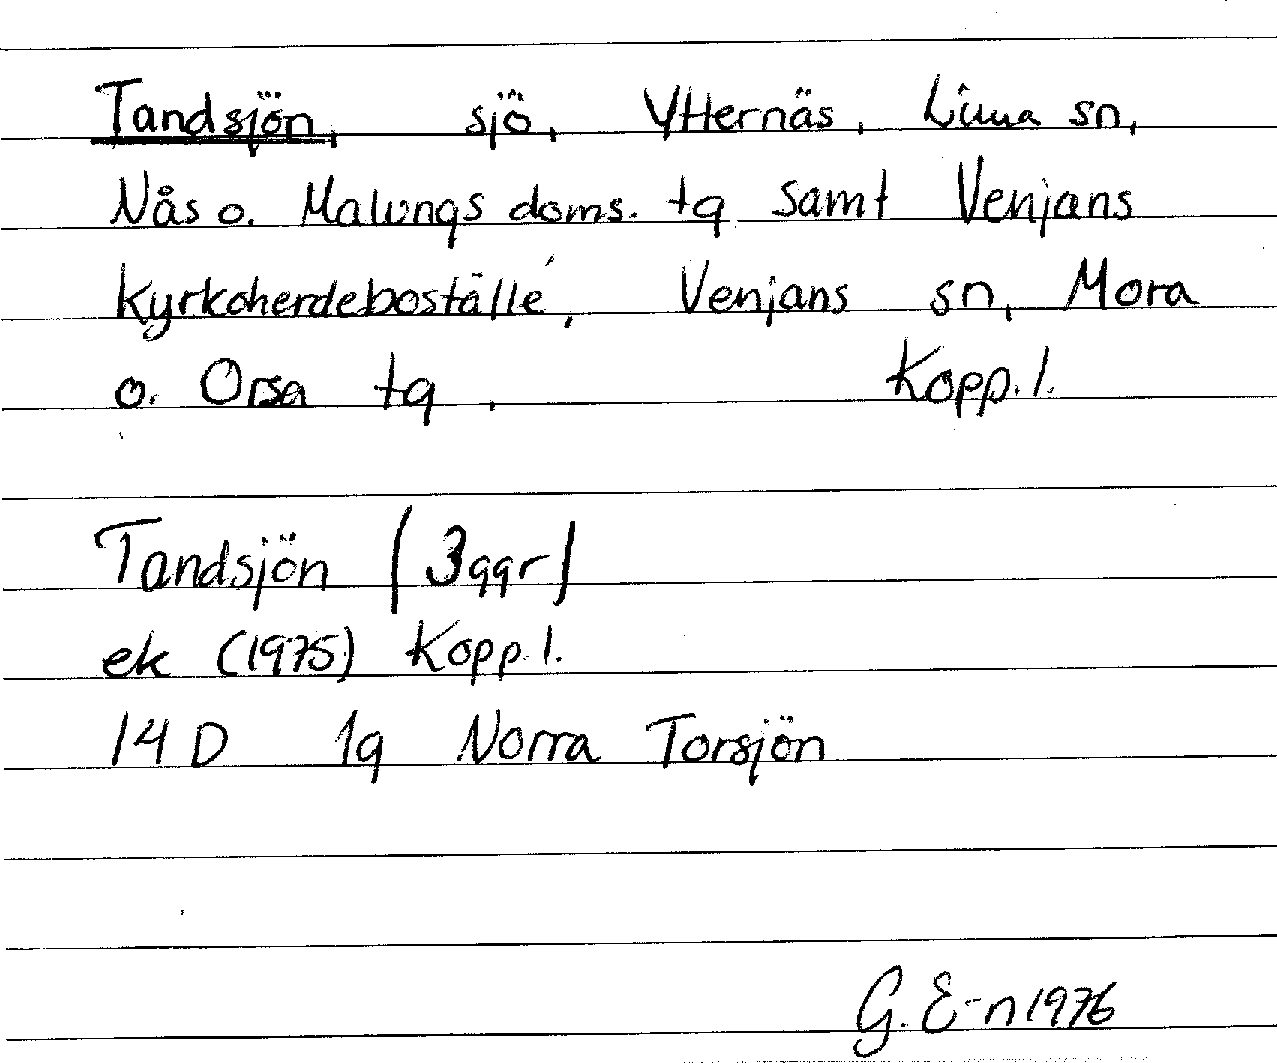 Tandsjön, sjö, Ytternäs, Lima sn,
Nås o. Malungs doms. tg samt Venjans
Kyrkoherdeboställe, Venjans sn, Mora
o. Orsa tg. Kopp. l.
Tandsjön (3ggr)
ek (1975) Kopp. l.
14 D 1g Norra Torsjön
G. E-n 1976